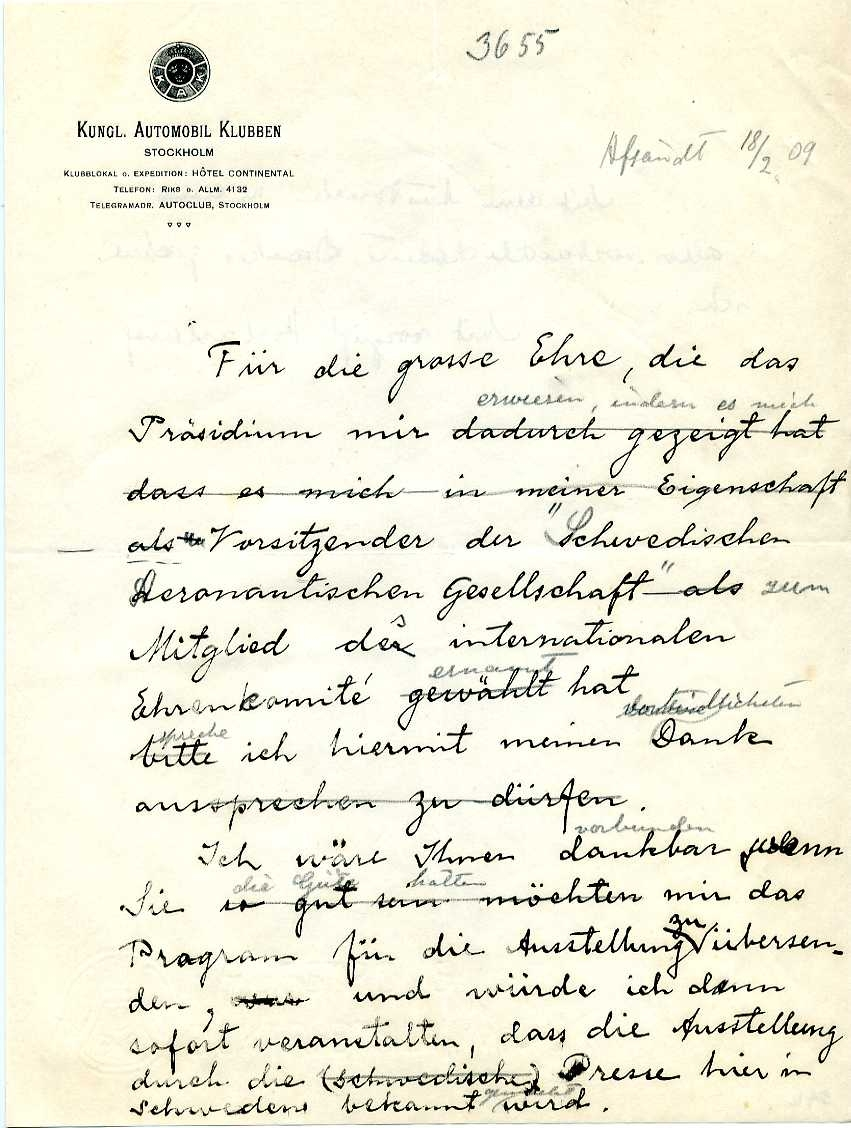 3655
KAK
KUNGL. AUTOMOBIL KLUBBEN
STOCKHOLM
KLUBBLOKAL O. EXPEDITION: HÔTEL CONTINENTAL
TELEFON: RIKS O. ALLM. 4132
TELEGRAMADR. AUTOCLUB, STOCKHOLM
Afsändt 18/2 09
Für die grosse Ehre, die das
erwiesen, indem es mich
Präsidium mir dadurch gezeigt hat
dass es mich in meiner Eigenschaft
als Vorsitzender der "Schwedischen
Aeronautischen Gesellschaft" als zum
Mitglied des internationalen
ernannt
Ehrenkomité gewählt hat
spreche verbindlichsten
bitte ich hiermit meinen Dank
aussprechen zu dürfen.
verbunden
Ich wäre Ihnen dankbar wenn
die Güte hätten
Sie so gut sein möchten mir das
zu
Program für die Ausstellung übersen-
den, und würde ich dann
sofort veranstalten, dass die Ausstellung
durch die (schwedische) Presse hier in
gemacht
Schweden bekannt wird.